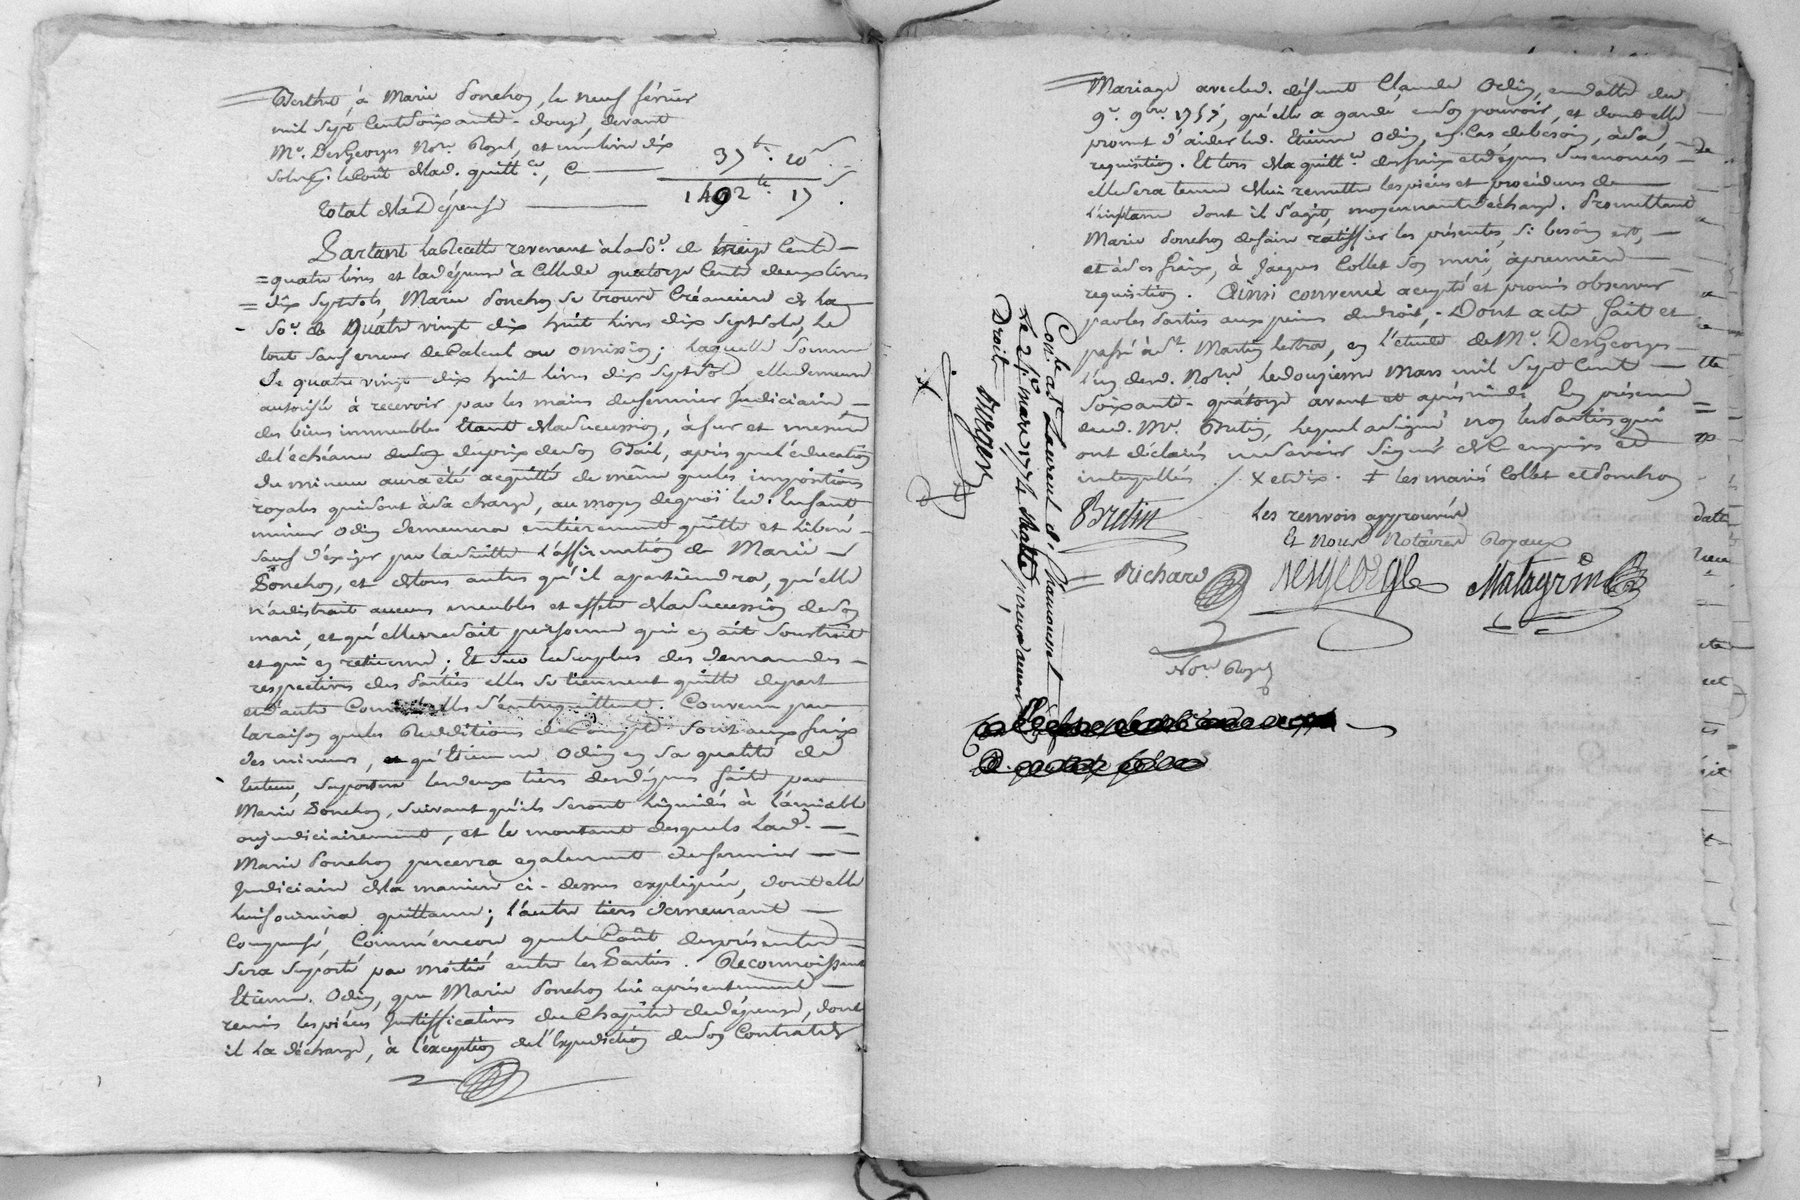 Berthet, à Marie Ponchon, le neuf février
mil sept Cent soixante-douze, devant
Me. DesGeorges Nore. Royal, et une livre dix
sols p. le Coût de lad. quittce, C 37tt. 10s
Total de la Dépense 1402tt 17s
Partant la Recette revenant à la Se. de treize Cent
quatre livres et la dépense à Celle de quatorze Cents deux livres
dix sept sols, Marie Ponchon se trouve Créancière de la
Se. de quatre vingt dix huit livres dix sept sols, le
tout sauf erreur de Calcul ou omission; laquelle somme
de quatre vingt dix huit livres dix sept sols, elle demeure
autorisée à recevoir par les mains du fermier Judiciaire
des biens immeubles étant de la succession, à fur et mesure
de l'échéance du prix de son Bail, après que l'éducation
du mineur aura été acquittée de même que les impositions
royales qui sont à sa charge, au moyen de quoi led. Enfant
mineur Odin demeurera entièrement quitte et libéré
sauf d'éxiger par la suitte l'affirmation de Marie
Ponchon, et de tous autres qu'il apartiendra, qu'elle
n'a distrait aucuns meubles et effets de la succession de son
mari, et qu'elle ne sait personne qui en ait soustrait
et qui en retienne; Et sur le surplus des demandes
respectives des Parties elles se tiennent quitte de part
et d'autre Comme elles s'entrequittent. Convenu par
la raison que les Redditions de Compte sont aux fraix
des mineurs, qu'Etienne Odin en sa qualité de
tuteur, suportera les deux tiers des dépens faits par
Marie Ponchon, suivant qu'ils seront liquidés à l'amiable
ou judiciairement, et le montant desquels lad.
Marie Ponchon percevra egalement du fermier
Judiciaire de la manière ci-dessus expliquée, dont elle
lui fournira quittance; l'autre tiers demeurant
Compensé, Comme encore que le Coût des présentes
sera suporté par moitié entre les Parties. Reconnoissant
Etienne Odin, que Marie Ponchon lui a présentement
remis les pièces Justifficatives du Chapitre de la dépense, dont
il la décharge, à l'éxception de l'Expédition de son Contrat de
Mariage avec led. défunt Claude Odin, en datte du
9e. 9bre 1757, qu'elle a gardé en son pouvoir, et dont elle
promet d'aider led. Etienne Odin, en Cas de besoin, à sa
requisition. Et lors de la quittce. des fraix et dépens susenoncés
elle sera tenue de lui remettre les pièces et procédures de
l'instance dont il s'agit, moyennant décharge. Promettant
Marie Ponchon de faire ratiffier les présentes, si besoin est,
et à ses fraix, à Jacques Collet son mari, à première
requisition. Ainsi convenu accepté et promis observer
par les Parties aux peines de droit, Dont acte fait et
passé à St. Martin lestra, en l'étude de Me. DesGeorges
l'un desd. Nores. le douzieme Mars mil sept Cent
soixante-quatorze avant et après midi, En présence
dud. Me. Bretin, lequel a signé non les Parties qui
ont déclaré ne savoir signer de ce enquis et
interpellés ./. X et dix. ‡ les mariés Collet et Ponchon
Les renvois approuvés
Bretin
Et Nous Notaires Royaux
Richard DesGeorges Matagrin
Nore Royal
Conlé. à St. Laurent d. Chamousset
Le 24e mars 1774
Droit